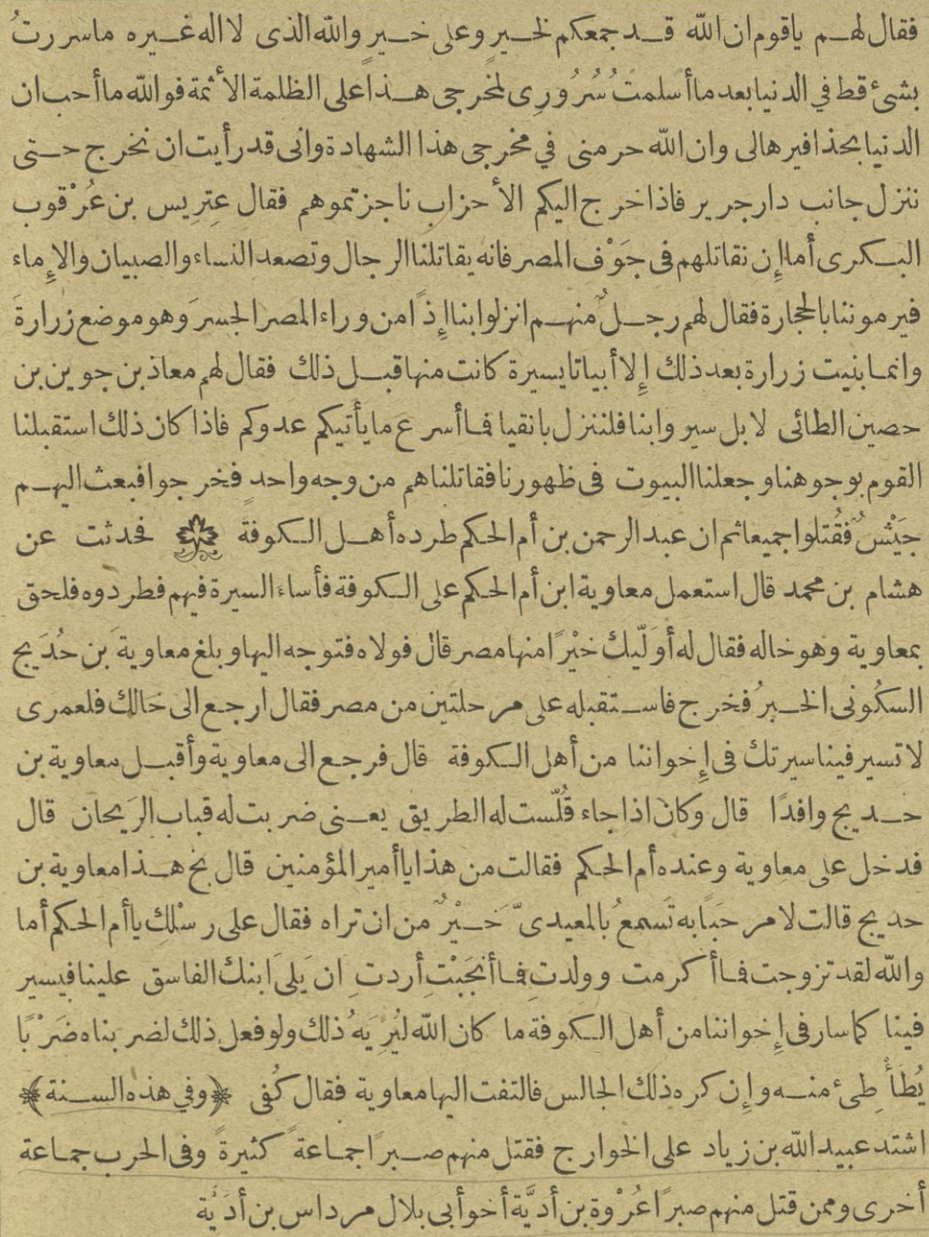 فقال لهم ياقوم ان الله قد جمعكم لخير وعلى خير والله الذى لا اله غيره ماسررتُ
بشئ قط في الدنيا بعد ما أسلمت سُرُورِى لمخرجى هذا على الظلمة الأثمة فوالله ما أحب ان
الدنيا بحذافيرها لى وان الله حرمنى في مخرجى هذا الشهادة وانى قد رأيت ان نخرج حتى
ننزل جانب دار جرير فاذا خرج اليكم الأحزاب ناجزتموهم فقال عتريس بن عُرْقوب
البكرى أما إن نقاتلهم فى جَوْف المصر فانه يقاتلنا الرجال وتصعد النساء والصبيان والإماء
فيرموننا بالحجارة فقال لهم رجلٌ منهم انزلوا بنا إذًا من وراء المصر الجسرَ وهو موضع زرارةَ
وانما بنيت زرارة بعد ذلك إلا أبياتا يسيرة كانت منها قبل ذلك فقال لهم معاذ بن جوين بن
حصين الطائى لا بل سيروا بنا فلننزل بانقيا فما أسرع ما يأتيكم عدوكم فاذا كان ذلك استقبلنا
القوم بوجوهنا وجعلنا البيوت فى ظهورنا فقاتلناهم من وجه واحد فخرجوا فبعث اليهم
جَيْشٌ فقُتلوا جميعا ثم ان عبد الرحمن بن أم الحكم طرده أهل الكوفة ۞ فحدثت عن
هشام بن محمد قال استعمل معاوية ابن أم الحكم على الكوفة فأساء السيرة فيهم فطردوه فلحق
بمعاوية وهو خاله فقال له أوَلّيك خيْرًا منها مصر قال فولاه فتوجه اليها وبلغ معاويةَ بن حُدَيج
السكُونى الخبرُ فخرج فاستقبله على مرحلتين من مصر فقال ارجع الى خالك فلعمرى
لا تسير فينا سيرتك فى إخواننا من أهل الكوفة قال فرجع الى معاوية وأقبل معاوية بن
حديج وافدًا قال وكان اذا جاء قُلّست له الطريق يعنى ضربت له قباب الريحان قال
فدخل على معاوية وعنده أم الحكم فقالت من هذا يا أمير المؤمنين قال بخ هذا معاوية بن
حديج قالت لا مرحَبًا به تَسمعُ بالمعيدىّ خيْرٌ من ان تراه فقال على رسْلكِ يا أم الحكم أما
والله لقد تزوجت فما أكرمت وولدتِ فما أنجَبْتِ أردتِ ان يَلىَ ابنك الفاسق علينا فيسير
فينا كما سار فى إخواننا من أهل الكوفة ما كان الله ليُرِيَهُ ذلك ولو فعل ذلك لضربناه ضَرْبًا
يُطَأْطِئ منه وإن كره ذلك الجالس فالتفت اليها معاوية فقال كُفى ﴿وفي هذه السنة﴾
اشتد عبيد الله بن زياد على الخوارج فقتل منهم صبرًا جماعةً كثيرةً وفى الحرب جماعة
أخرى وممن قتل منهم صبرًا عُرْوة بن أديَّة أخو أبى بلال مرداس بن أدَيَّة